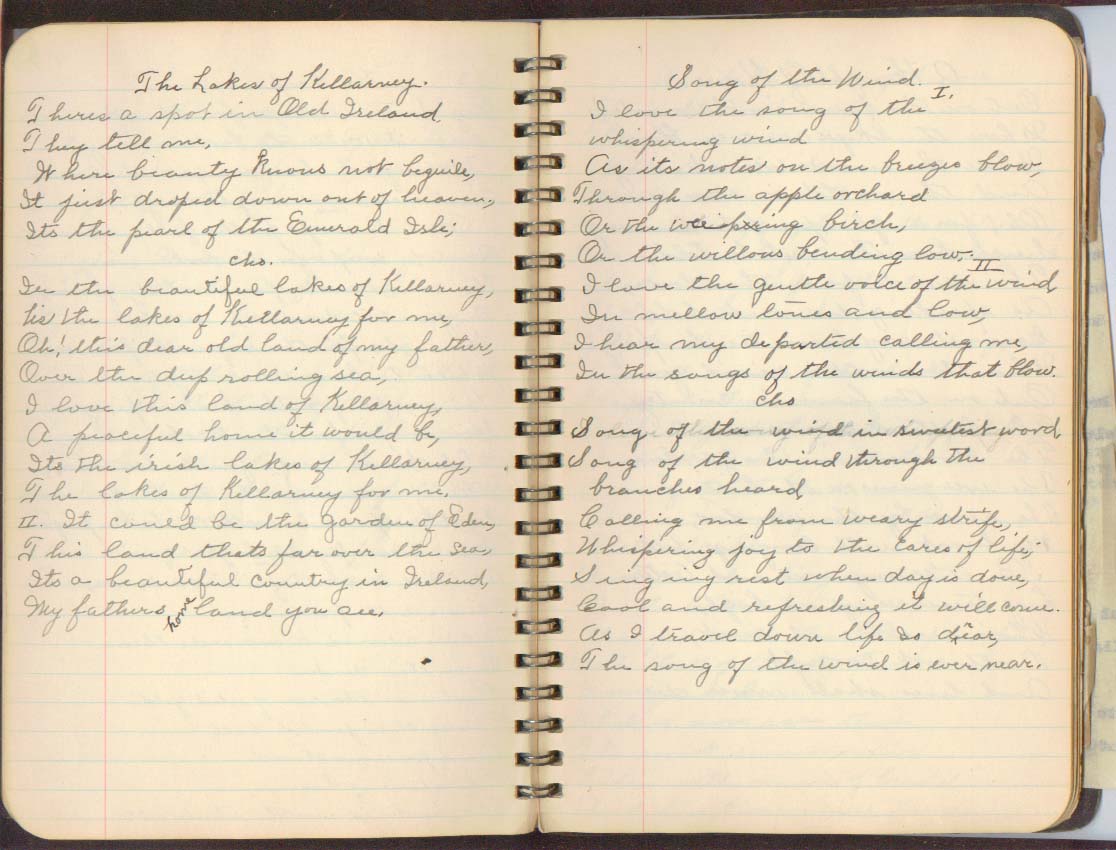 The Lakes of Killarney.
Theres a spot in Old Ireland,
They tell me,
Where beauty knows not beguile,
It just droped down out of heaven,
Its the pearl of the Emerald Isle;
cho.
In the beautiful lakes of Killarney,
tis the lakes of Killarney for me,
Oh! this dear old land of my father,
Over the deep rolling sea,
I love this land of Killarney,
A peaceful home it would be,
Its the irish lakes of Killarney,
The lakes of Killarney for me.
II. It could be the garden of Eden,
This land thats far over the sea,
Its a beautiful country in Ireland,
My fathers home land you see.
Song of the Wind.
I.
I love the song of the
whispering wind
As its notes on the breezes blow,
Through the apple orchard
Or the weeping birch,
Or the willows bending low,
II
I love the gentle voice of the wind
In mellow tones and low,
I hear my departed calling me,
In the songs of the winds that blow.
cho
Song of the wind in sweetest word
Song of the wind through the
branches heard
Calling me from weary strife,
Whispering joy to the cares of life;
Singing rest when day is done,
Cool and refreshing it will come.
As I travel down life so dear,
The song of the wind is ever near.